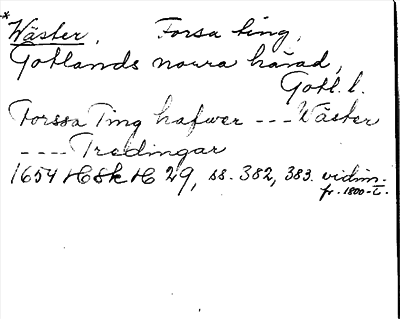 *Wäster, Forsa ting,
Gotlands norra härad,
Gotl. l.
Forssa Ting hafwer --- Wäster
---- Tredingar
1654 HSk H 29, ss. 382, 383. vidim.
fr. 1800-t.